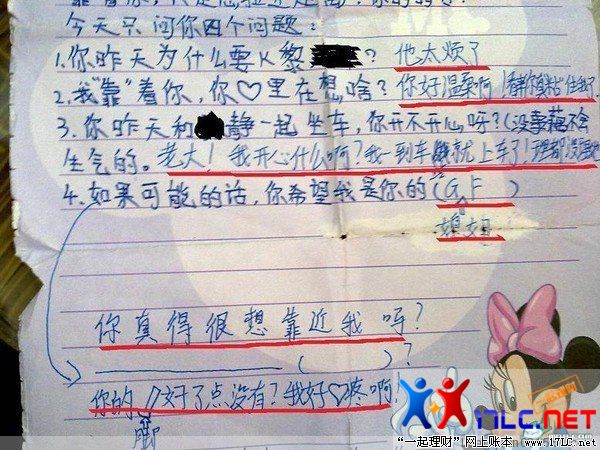 今天只问你四个问题：
1.你昨天为什么要K黎？他太烦了
2.我"靠"着你，你♡里在想啥？你好温柔啊！
3.你昨天和静一起坐车，你开不开心呀？(没事藕不会
生气的。老大！我开心什么啊？我一到车就上车了！
4.如果可能的话，你希望我是你的(GF)
媳妇
你真得很想靠近我吗？
( )？
你的好了点没有？我好♡疼啊！
脚
17LC.NET
"一起理财"网上账本 www.17LC.net